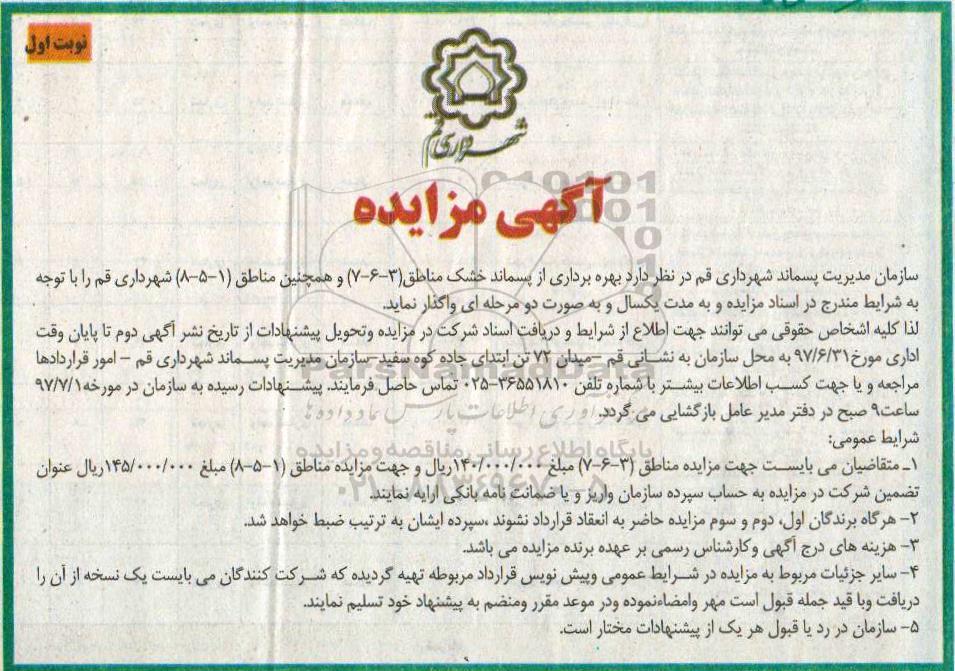 نوبت اول
شهرداری قم
آگهی مزایده
سازمان مدیریت پسماند شهرداری قم در نظر دارد بهره برداری از پسماند خشک مناطق(۳-۶-۷) و همچنین مناطق (۱-۵-۸) شهرداری قم را با توجه
به شرایط مندرج در اسناد مزایده و به مدت یکسال و به صورت دو مرحله ای واگذار نماید.
لذا کلیه اشخاص حقوقی می توانند جهت اطلاع از شرایط و دریافت اسناد شرکت در مزایده وتحویل پیشنهادات از تاریخ نشر آگهی دوم تا پایان وقت
اداری مورخ۹۷/۶/۳۱ به محل سازمان به نشانی قم –میدان ۷۲ تن ابتدای جاده کوه سفید-سازمان مدیریت پسماند شهرداری قم – امور قراردادها
مراجعه و یا جهت کسب اطلاعات بیشتر با شماره تلفن ۳۶۵۵۱۸۱۰-۰۲۵ تماس حاصل فرمایند. پیشنهادات رسیده به سازمان در مورخه۹۷/۷/۱
ساعت۹ صبح در دفتر مدیر عامل بازگشایی می گردد.
شرایط عمومی:
۱ـ متقاضیان می بایست جهت مزایده مناطق (۳-۶-۷) مبلغ ۱۴۰/۰۰۰/۰۰۰ریال و جهت مزایده مناطق (۱-۵-۸) مبلغ ۱۴۵/۰۰۰/۰۰۰ریال عنوان
تضمین شرکت در مزایده به حساب سپرده سازمان واریز و یا ضمانت نامه بانکی ارایه نمایند.
۲- هرگاه برندگان اول، دوم و سوم مزایده حاضر به انعقاد قرارداد نشوند ،سپرده ایشان به ترتیب ضبط خواهد شد.
۳- هزینه های درج آگهی وکارشناس رسمی بر عهده برنده مزایده می باشد.
۴- سایر جزئیات مربوط به مزایده در شرایط عمومی وپیش نویس قرارداد مربوطه تهیه گردیده که شرکت کنندگان می بایست یک نسخه از آن را
دریافت وبا قید جمله قبول است مهر وامضاءنموده ودر موعد مقرر ومنضم به پیشنهاد خود تسلیم نمایند.
۵- سازمان در رد یا قبول هر یک از پیشنهادات مختار است.
ParsNamadData
پایگاه اطلاع رسانی مناقصه و مزایده